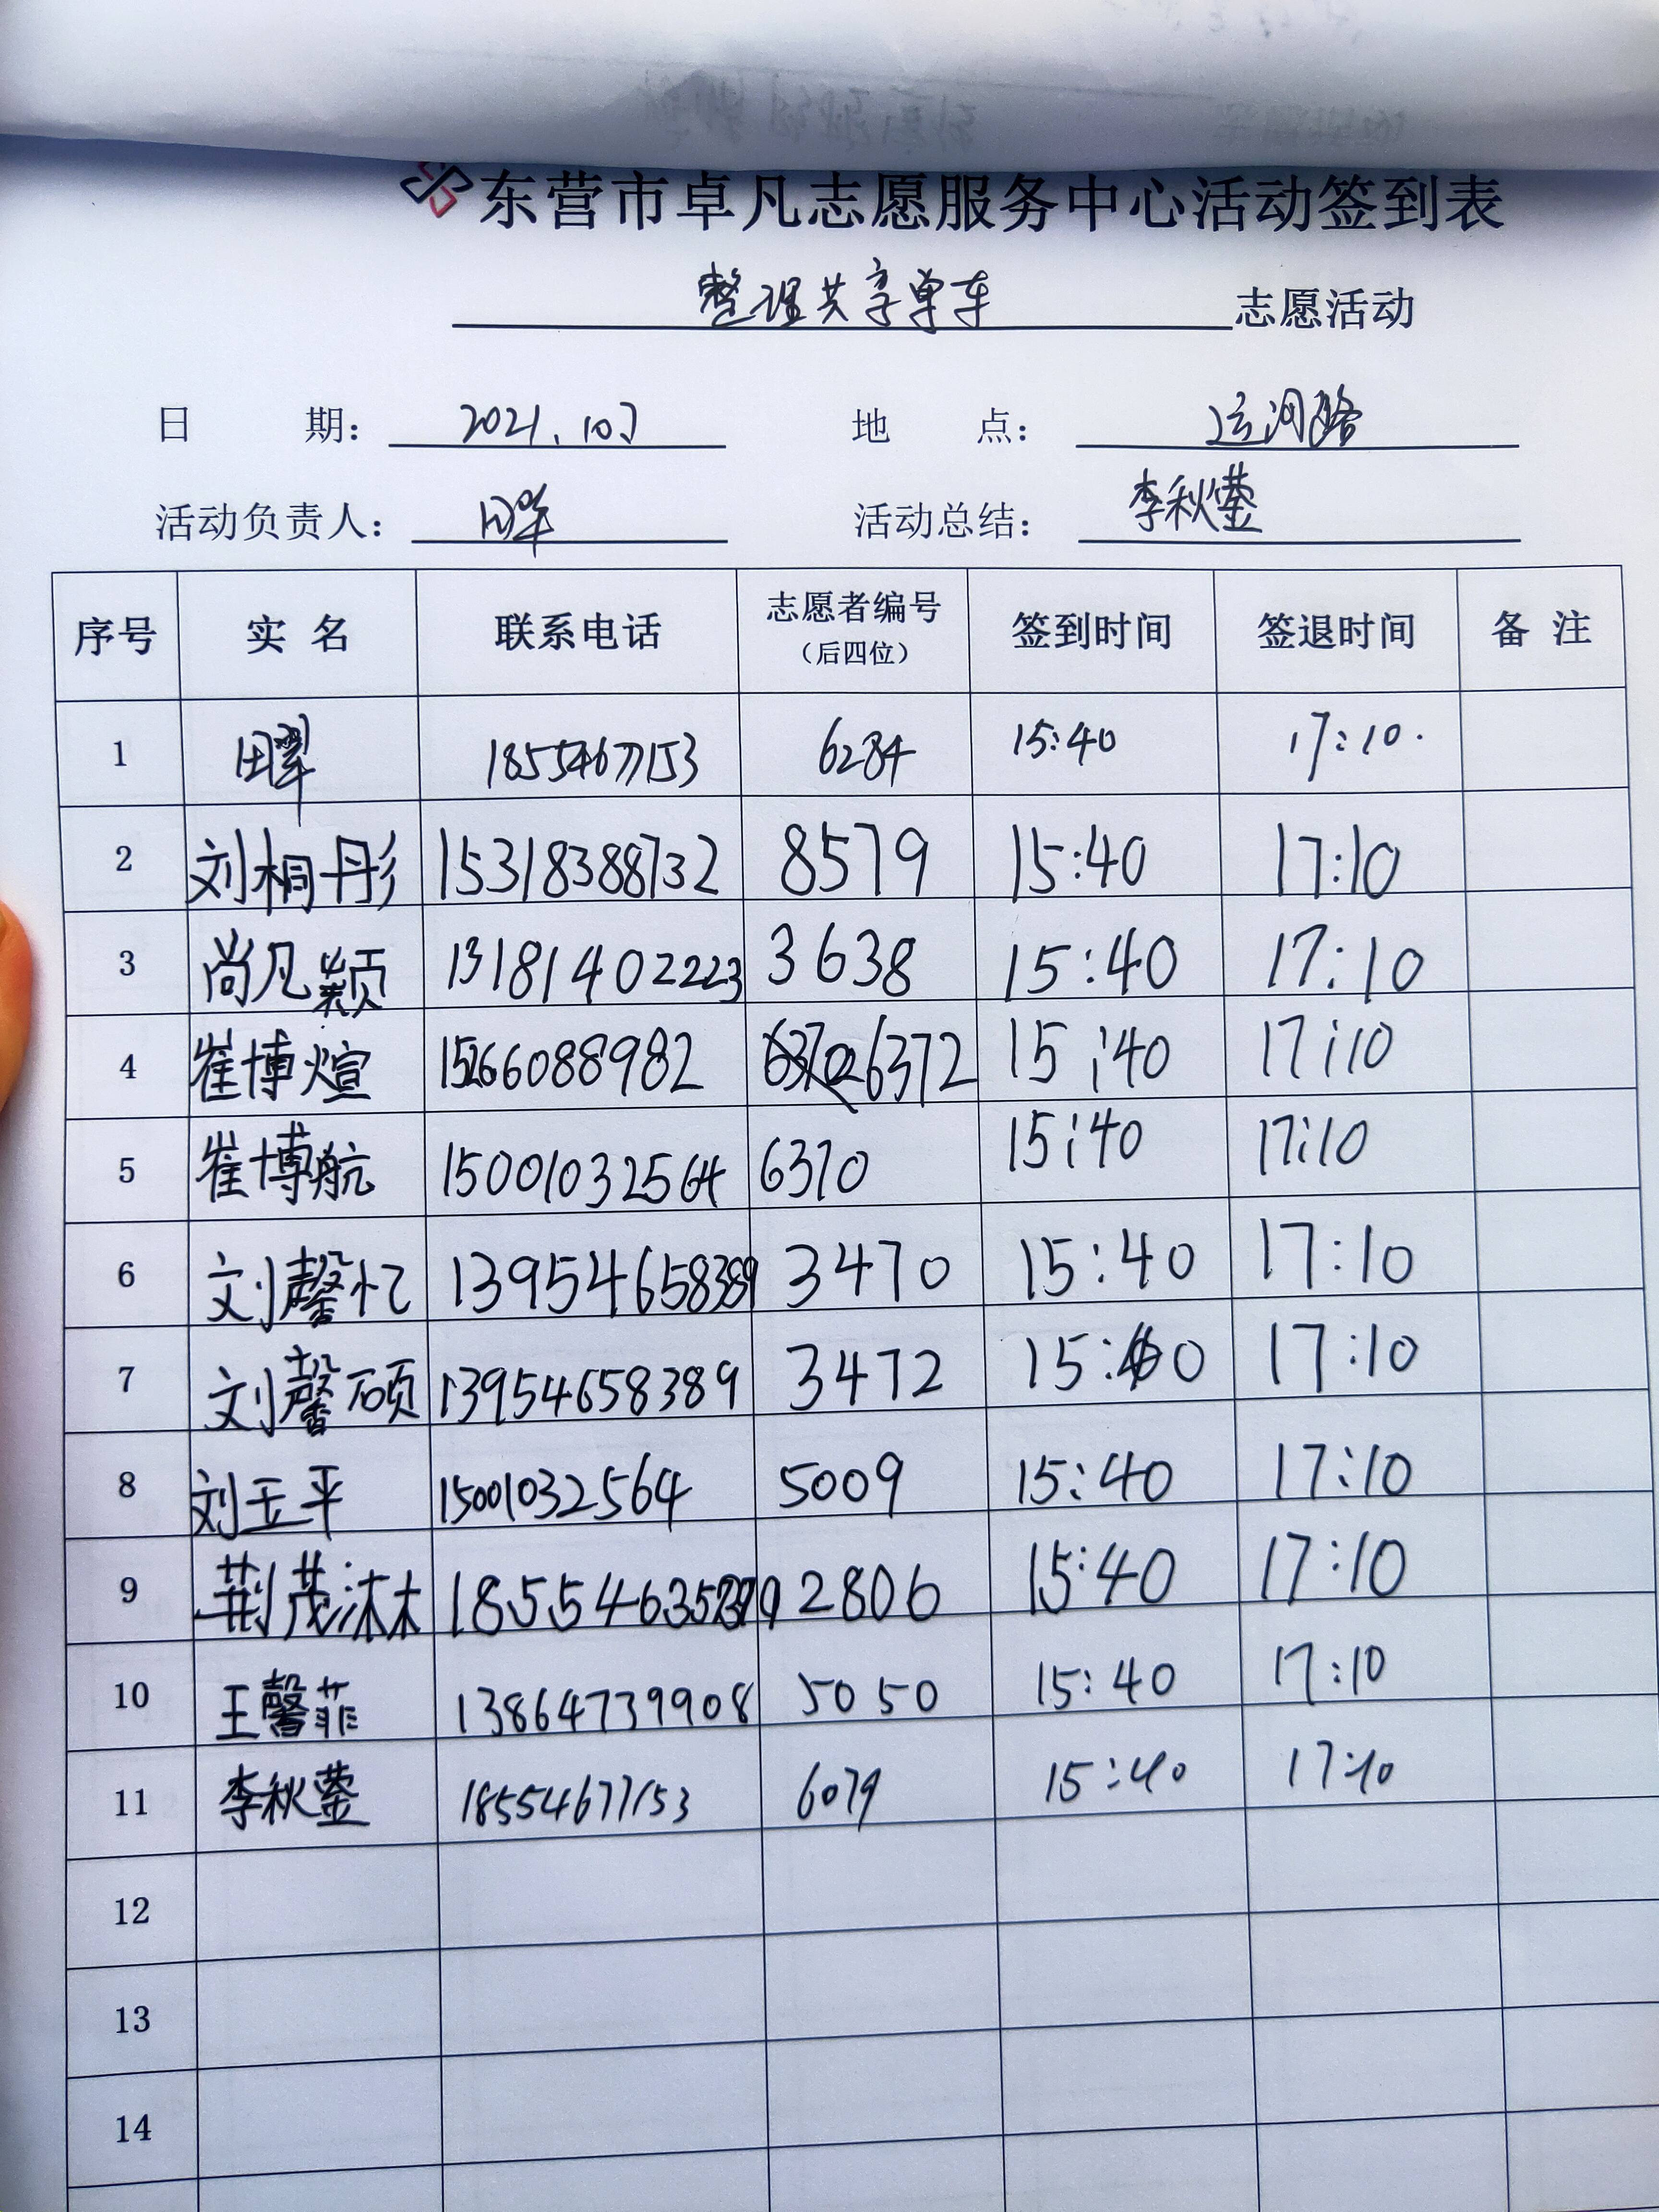 东营市卓凡志愿服务中心活动签到表
整理共享单车 志愿活动
日 期: 2021. 地 点: 运河路
活动负责人: 田翠 活动总结: 李秋蓥
序号 实 名 联系电话 志愿者编号（后四位） 签到时间 签退时间 备 注
1 田翠 18554677153 6284 15:40 17:10.
2 刘桐彤 15318388732 8579 15:40 17:10
3 尚凡颖 13181402223 3638 15:40 17:10
4 崔博煊 15266088982 6372 15:40 17:10
5 崔博航 15001032564 6370 15:40 17:10
6 刘馨忆 13954658389 3470 15:40 17:10
7 刘馨硕 13954658389 3472 15:40 17:10
8 刘玉平 15001032564 5009 15:40 17:10
9 荆茂沐 2806 15:40 17:10
10 王馨菲 13864739908 5050 15:40 17:10
11 李秋蓥 18554677153 6079 15:40 17:10
12
13
14